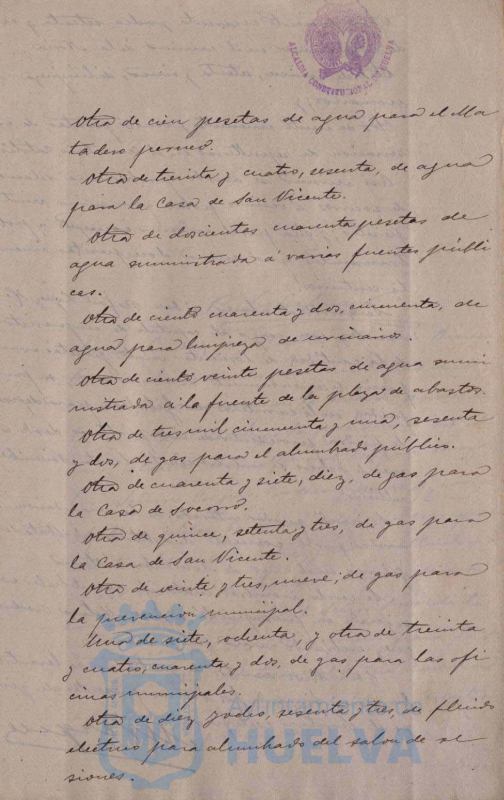 ALCALDIA CONSTITUCIONAL DE HUELVA
Otra de cien pesetas de agua para el Ma-
tadero perneo.
Otra de treinta y cuatro, sesenta, de agua
para la Casa de San Vicente.
Otra de doscientas cuarenta pesetas de
agua suministrada á varias fuentes públi
cas.
Otra de ciento cuarenta y dos, cincuenta, de
agua para limpieza de urinarios.
Otra de ciento veinte pesetas de agua sumi
nistrada á la fuente de la plaza de abastos.
Otra de tres mil cincuenta y una, sesenta
y dos, de gas para el alumbrado público.
Otra de cuarenta y siete, diez, de gas para
la Casa de Socorro.
Otra de quince, setenta y tres, de gas para
la Casa de San Vicente.
Otra de veinte y tres, nueve; de gas para
la prevención municipal.
Una de siete, ochenta, y otra de treinta
y cuatro, cuarenta y dos, de gas para las ofi
cinas municipales.
Otra de diez y ocho, sesenta y tres, de fluido
electrico para alumbrado del salon de se
siones.
Ayuntamiento de
HUELVA